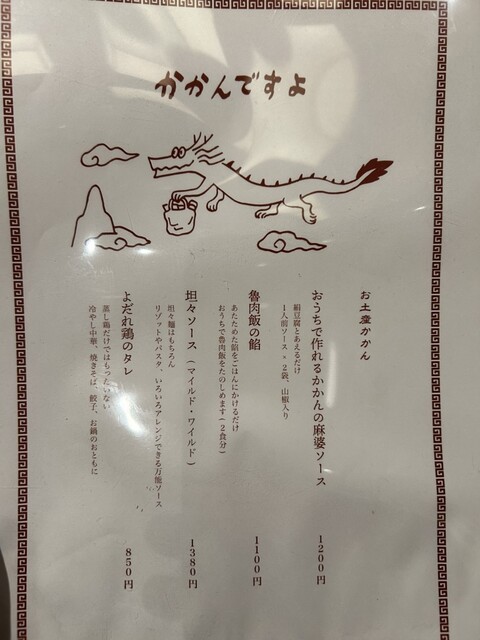 かかんですよ
お土産かかん
おうちで作れるかかんの麻婆ソース 1200円
絹豆腐とあえるだけ
1人前ソース×2袋、山椒入り
魯肉飯の餡 1100円
あたためた餡をごはんにかけるだけ
おうちで魯肉飯をたのしめます(2食分)
坦々ソース(マイルド・ワイルド) 1380円
坦々麺はもちろん
リゾットやパスタ、いろいろアレンジできる万能ソース
よだれ鶏のタレ 850円
蒸し鶏だけではもったいない
冷やし中華、焼きそば、餃子、お鍋のおともに